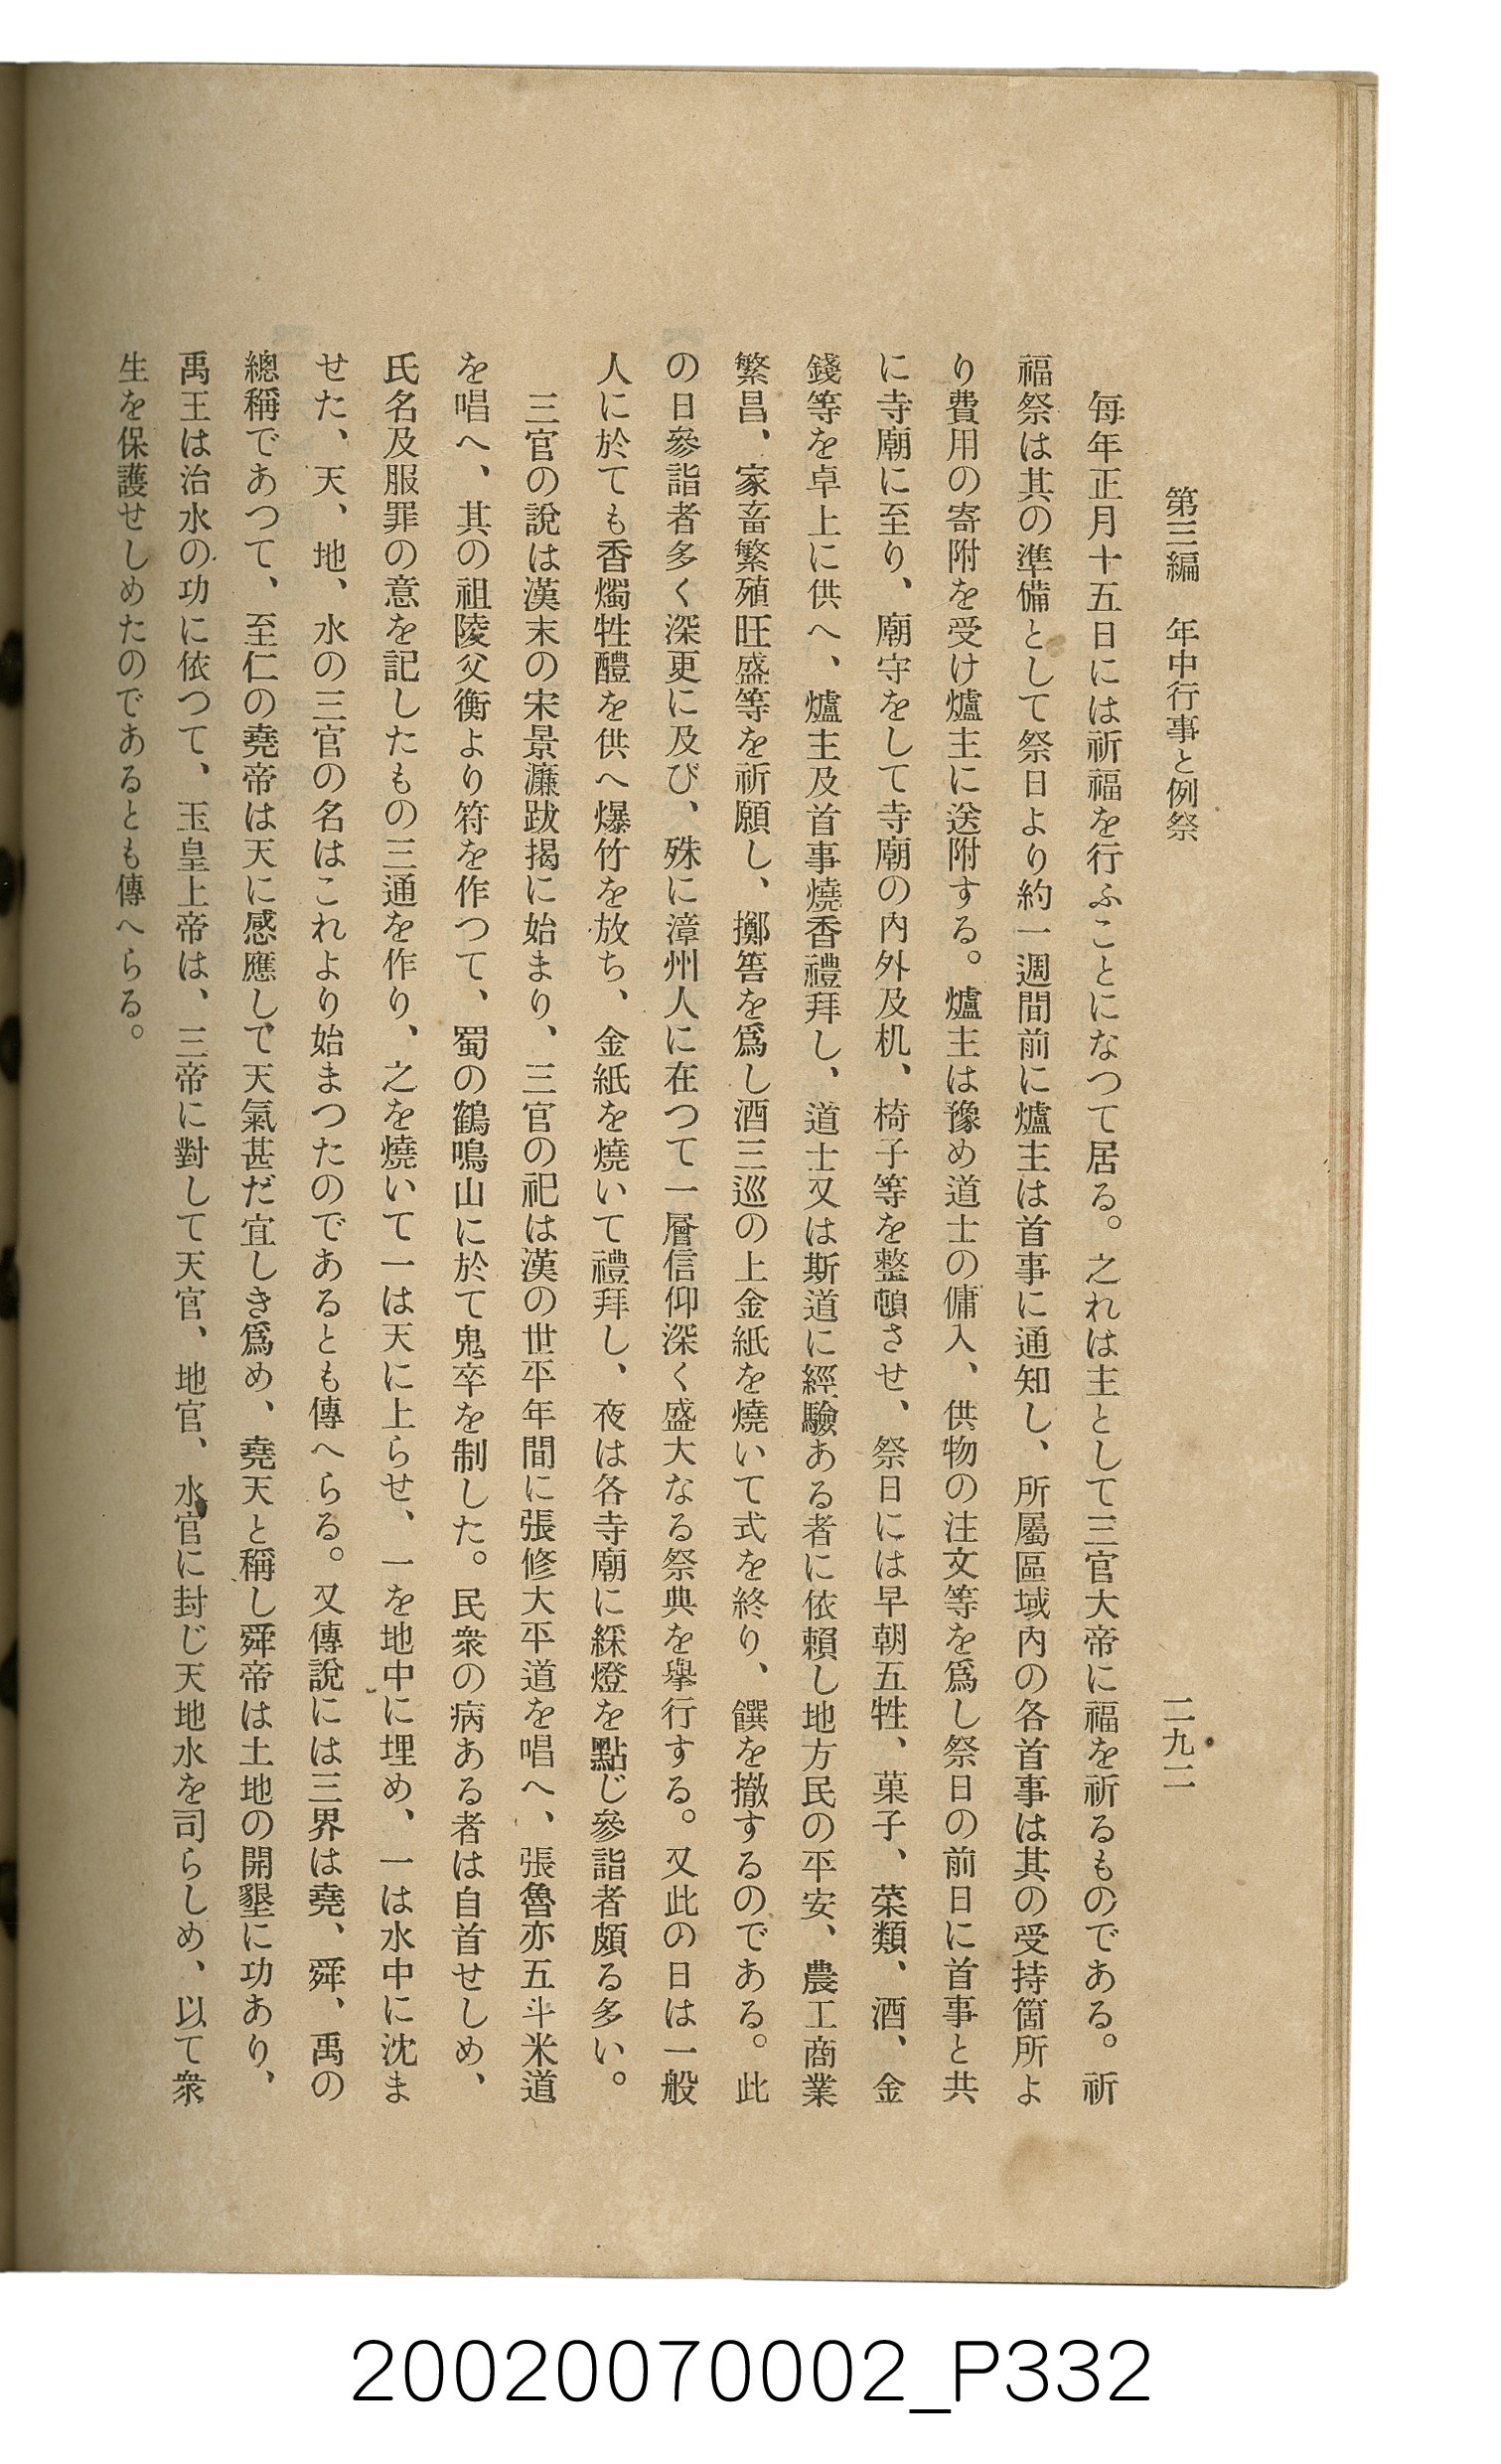 第三編　年中行事と例祭　二九二
每年正月十五日には祈福を行ふことになつて居る。之れは主として三官大帝に福を祈るものである。祈
福祭は其の準備として祭日より約一週間前に爐主は首事に通知し、所屬區域內の各首事は其の受持箇所よ
り費用の寄附を受け爐主に送附する。爐主は豫め道士の傭入、供物の注文等を爲し祭日の前日に首事と共
に寺廟に至り、廟守をして寺廟の內外及机、椅子等を整頓させ、祭日には早朝五牲、菓子、菜類、酒、金
錢等を卓上に供へ、爐主及首事燒香禮拜し、道士又は斯道に經驗ある者に依賴し地方民の平安、農工商業
繁昌、家畜繁殖旺盛等を祈願し、擲筶を爲し酒三巡の上金紙を燒いて式を終り、饌を撤するのである。此
の日參詣者多く深更に及び、殊に漳州人に在つて一層信仰深く盛大なる祭典を擧行する。又此の日は一般
人に於ても香燭牲醴を供へ爆竹を放ち、金紙を燒いて禮拜し、夜は各寺廟に綵燈を點じ參詣者頗る多い。
三官の說は漢末の宋景濂跋揭に始まり、三官の祀は漢の世平年間に張修大平道を唱へ、張魯亦五斗米道
を唱へ、其の祖陵父衡より符を作つて、蜀の鶴鳴山に於て鬼卒を制した。民衆の病ある者は自首せしめ、
氏名及服罪の意を記したもの三通を作り、之を燒いて一は天に上らせ、一を地中に埋め、一は水中に沈ま
せた、天、地、水の三官の名はこれより始まつたのであるとも傳へらる。又傳說には三界は堯、舜、禹の
總稱であつて、至仁の堯帝は天に感應して天氣甚だ宜しき爲め、堯天と稱し舜帝は土地の開墾に功あり、
禹王は治水の功に依つて、玉皇上帝は、三帝に對して天官、地官、水官に封じ天地水を司らしめ、以て衆
生を保護せしめたのであるとも傳へらる。
20020070002_P332